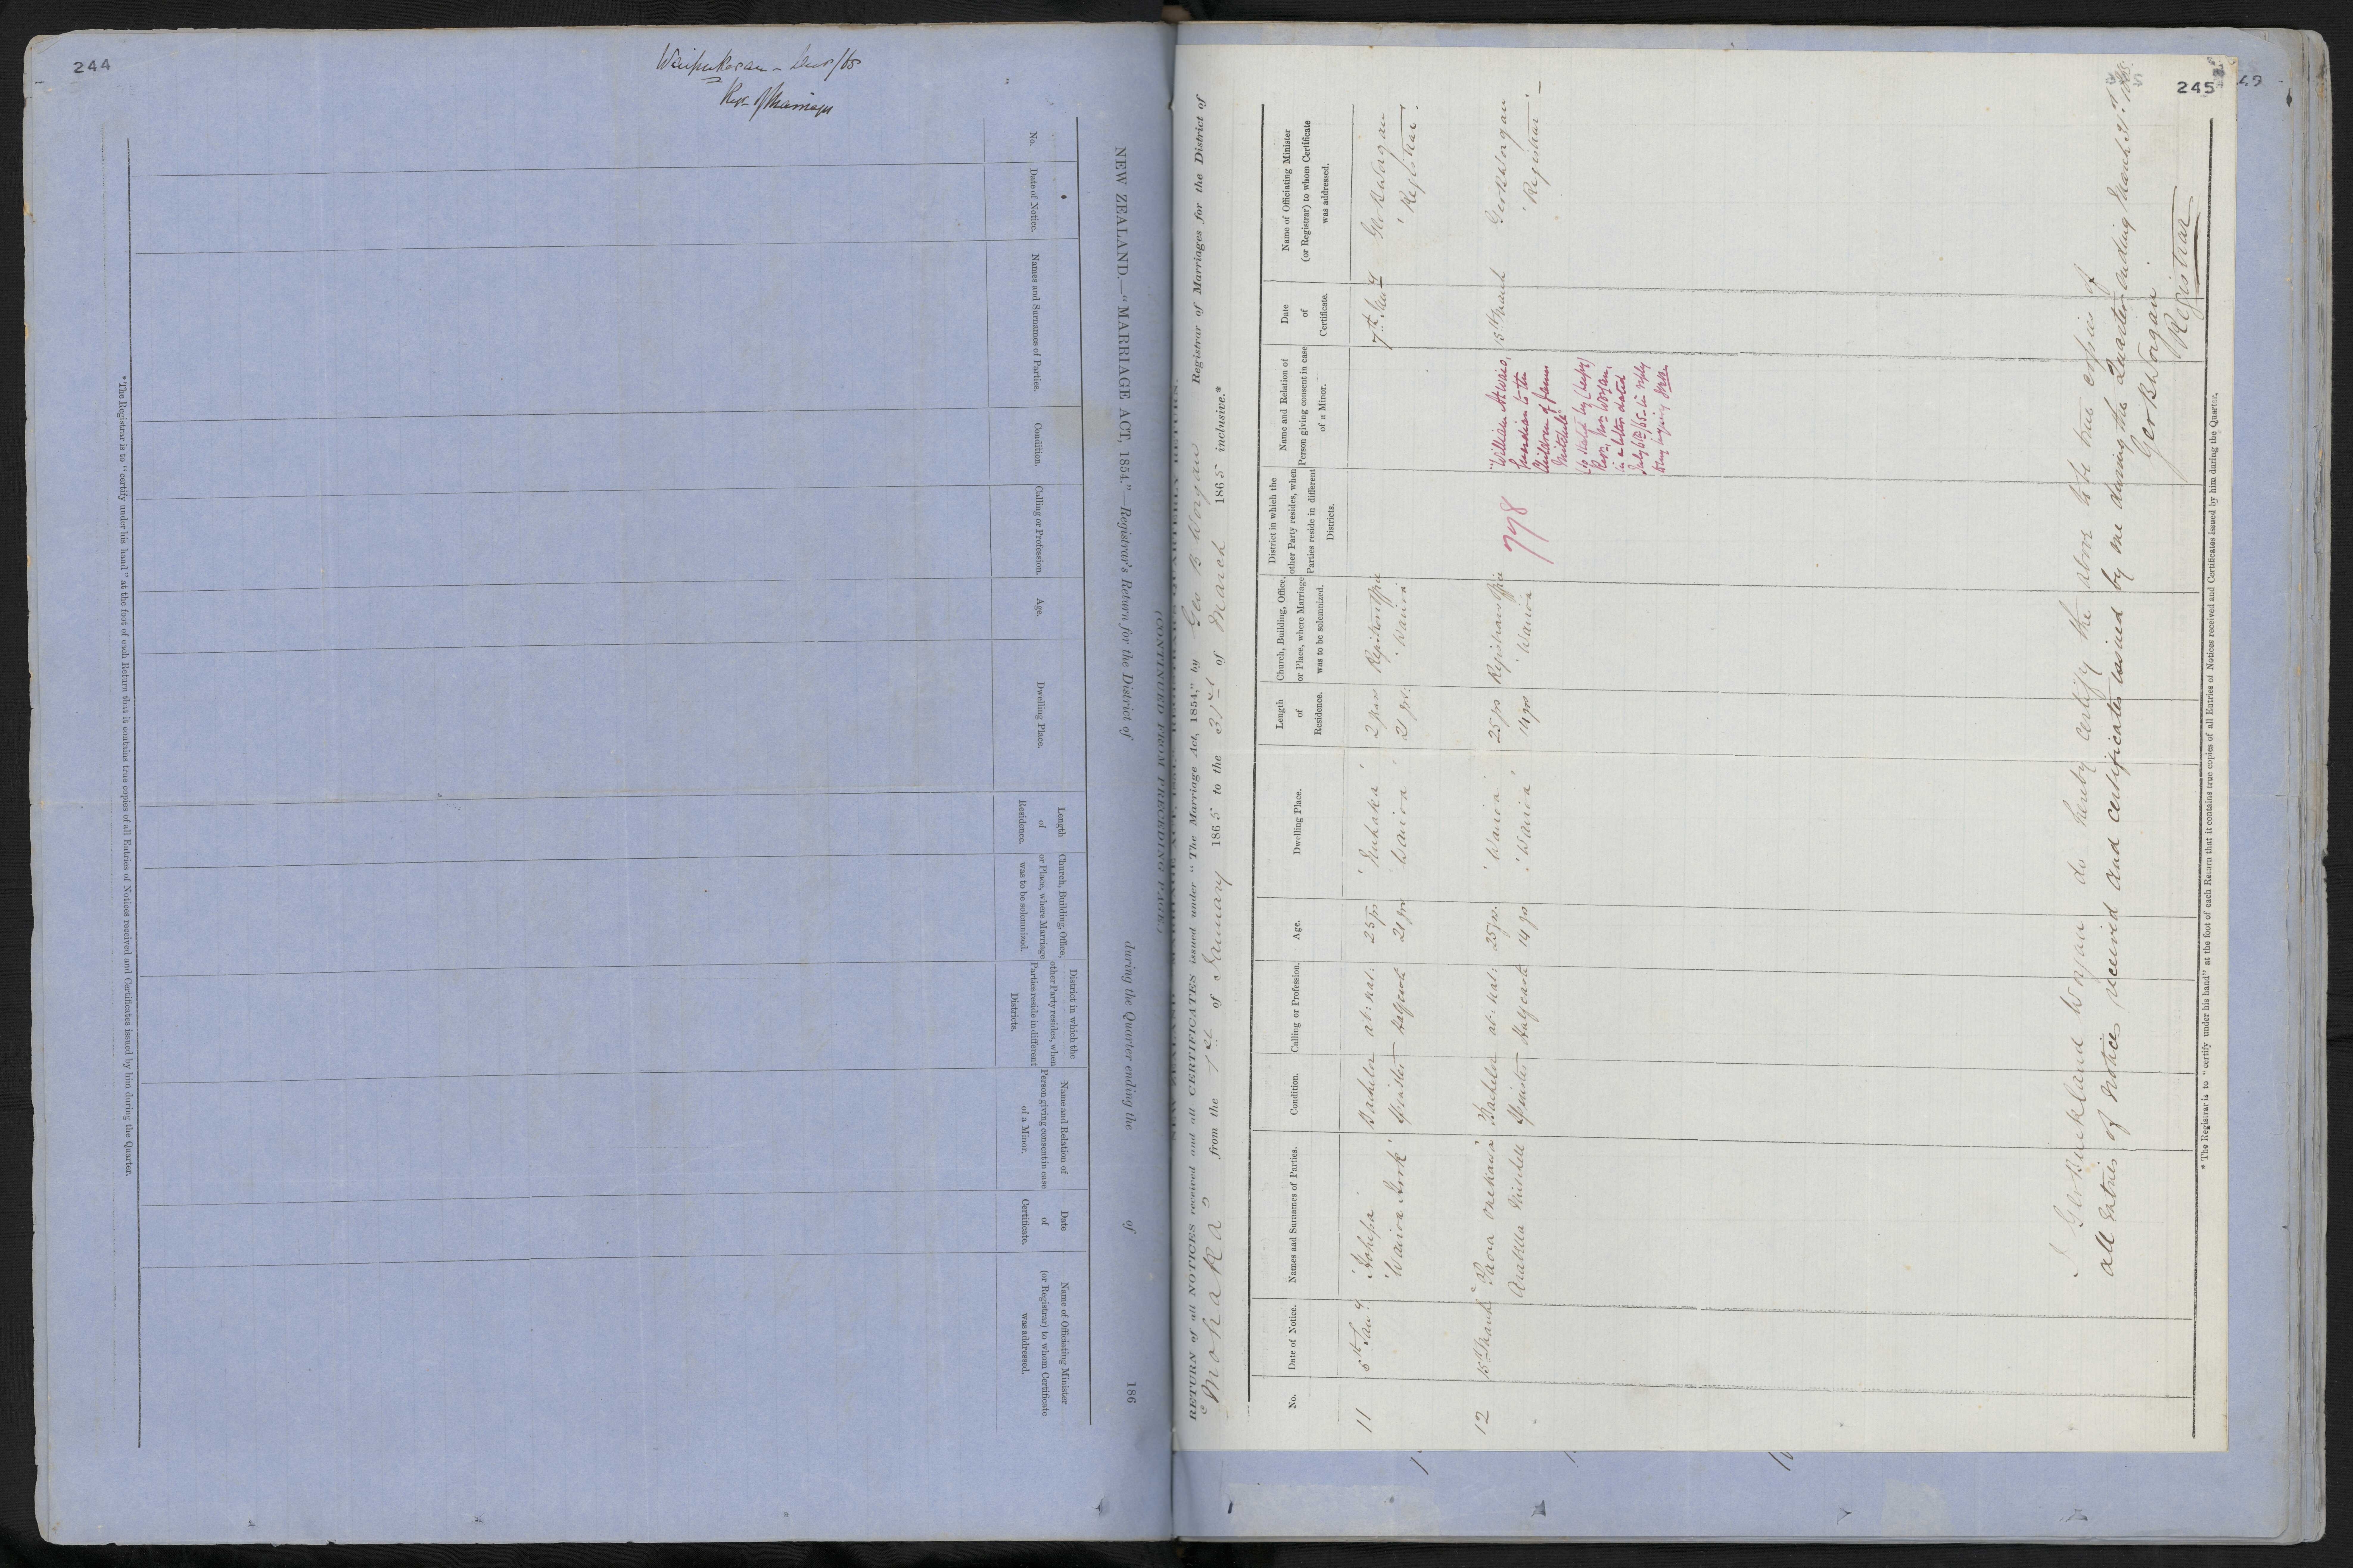 244
Waipukurau - Mar/65
Regr. of Marriages
NEW ZEALAND.—"MARRIAGE ACT, 1854."—Registrar's Return for the District of during the Quarter ending the of 186
No.
Date of Notice.
Names and Surnames of Parties.
Condition.
Calling or Profession.
Age.
Dwelling Place.
Length
of
Residence.
Church, Building, Office,
or Place, where Marriage
was to be solemnized.
District in which the
other Party resides, when
Parties reside in different
Districts.
Name and Relation of
Person giving consent in case
of a Minor.
Date
of
Certificate.
Name of Officiating Minister
(or Registrar) to whom Certificate
was addressed.
* The Registrar is to "certify under his hand" at the foot of each Return that it contains true copies of all Entries of Notices received and Certificates issued by him during the Quarter.
245
(CONTINUED FROM PRECEDING PAGE.)
RETURN of all NOTICES received and all CERTIFICATES issued under "The Marriage Act, 1854," by Geo B Worgan Registrar of Marriages for the District of
"Mohaka" from the 1st of January 1865 to the 31st of March 1865 inclusive.*
No.
Date of Notice.
Names and Surnames of Parties.
Condition.
Calling or Profession.
Age.
Dwelling Place.
Length
of
Residence.
Church, Building, Office,
or Place, where Marriage
was to be solemnized.
District in which the
other Party resides, when
Parties reside in different
Districts.
Name and Relation of
Person giving consent in case
of a Minor.
Date
of
Certificate.
Name of Officiating Minister
(or Registrar) to whom Certificate
was addressed.
11 Bachelor 25 yrs 'Nuhaka' 2 years Geo B Worgan
Spinster Halfcaste 21 yrs Wairoa 21 yrs. 'Wairoa Registrar.
12 15th March Bachelor 25 yrs. 'Wairoa' 25 yrs Registrars Office 778 15th March Geo B Worgan
Arabella Mitchell Spinster Halfcaste 14 yrs 'Wairoa' 14 yrs 'Wairoa 'Registrar'
"William Attwood,
Guardian to the
Children of James
Mitchell"
so stated by (Depy)
Regr. Geo. Worgan,
in a letter dated
in reply
I Geo Buckland Worgan do hereby certify the above to be true copies of
all Entries of Notices received and Certificates issued by me during the Quarter ending March 31st 1865.
Geo B Worgan
Registrar
* The Registrar is to "certify under his hand" at the foot of each Return that it contains true copies of all Entries of Notices received and Certificates issued by him during the Quarter.